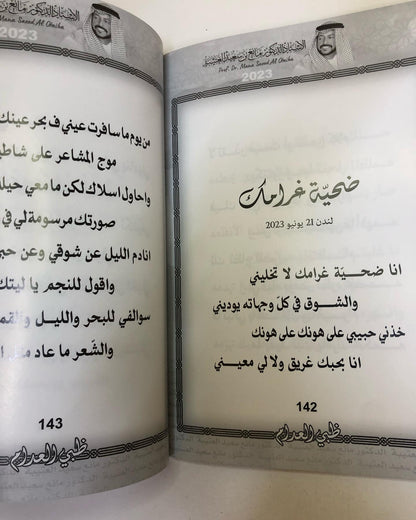 الأستاذ الدكتور مانع بن سعيد العتيبة
Prof. Dr. Mana Saeed Al Otaiba
2023
ضحيّة غرامك
لندن 21 يونيو 2023
انا ضحيّة غرامك لا تخليني
والشوق في كلّ وجهاته يوديني
خذني حبيبي على هونك على هونك
انا بحبك غريق ولا لي معيني
142
ظبي العدام
الأستاذ الدكتور مانع بن
Prof. Dr. Mana Saeed Al Otaiba
2023
من يوم ما سافرت عيني ف بحر عينك
موج المشاعر على
واحاول اسلاك لكن ما معي
صورتك مرسومة لي في
انادم الليل عن شوقي وعن
واقول للنجم يا ليتك
سوالفي للبحر والليل
والشّعر ما عاد
143
ظبي العدام